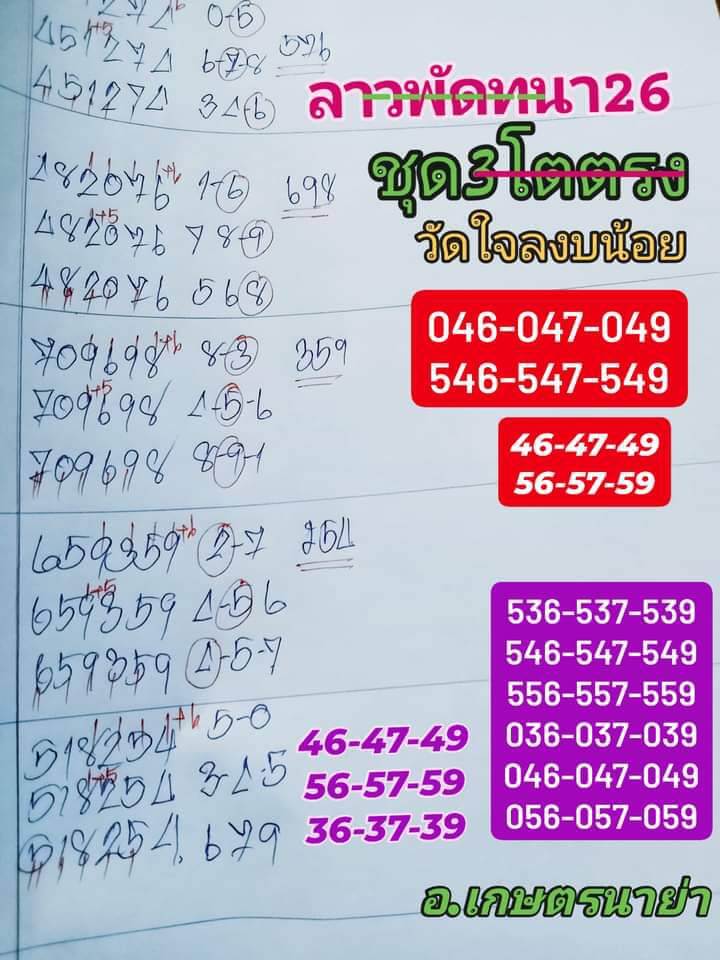 0-5
451274 6-7-8 576
451274 3 4-6
482076 +6 1-6 698
482076 1+5 7 8-9
482076 5 6 8
709698 1+6 8-3 359
709698 1+5 4-5-6
709698 8-9-1
659359 1+6 2-7 254
659359 1+5 4-5 6
659359 4-5-7
518254 1+6 5-0
518254 1+5 3-4-5
518254. 679
ลาวพัดทนา26
ชุด3โตตรง
วัดใจลงบน้อย
046-047-049
546-547-549
46-47-49
56-57-59
536-537-539
546-547-549
556-557-559
036-037-039
046-047-049
056-057-059
46-47-49
56-57-59
36-37-39
อ.เกษตรนาย่า